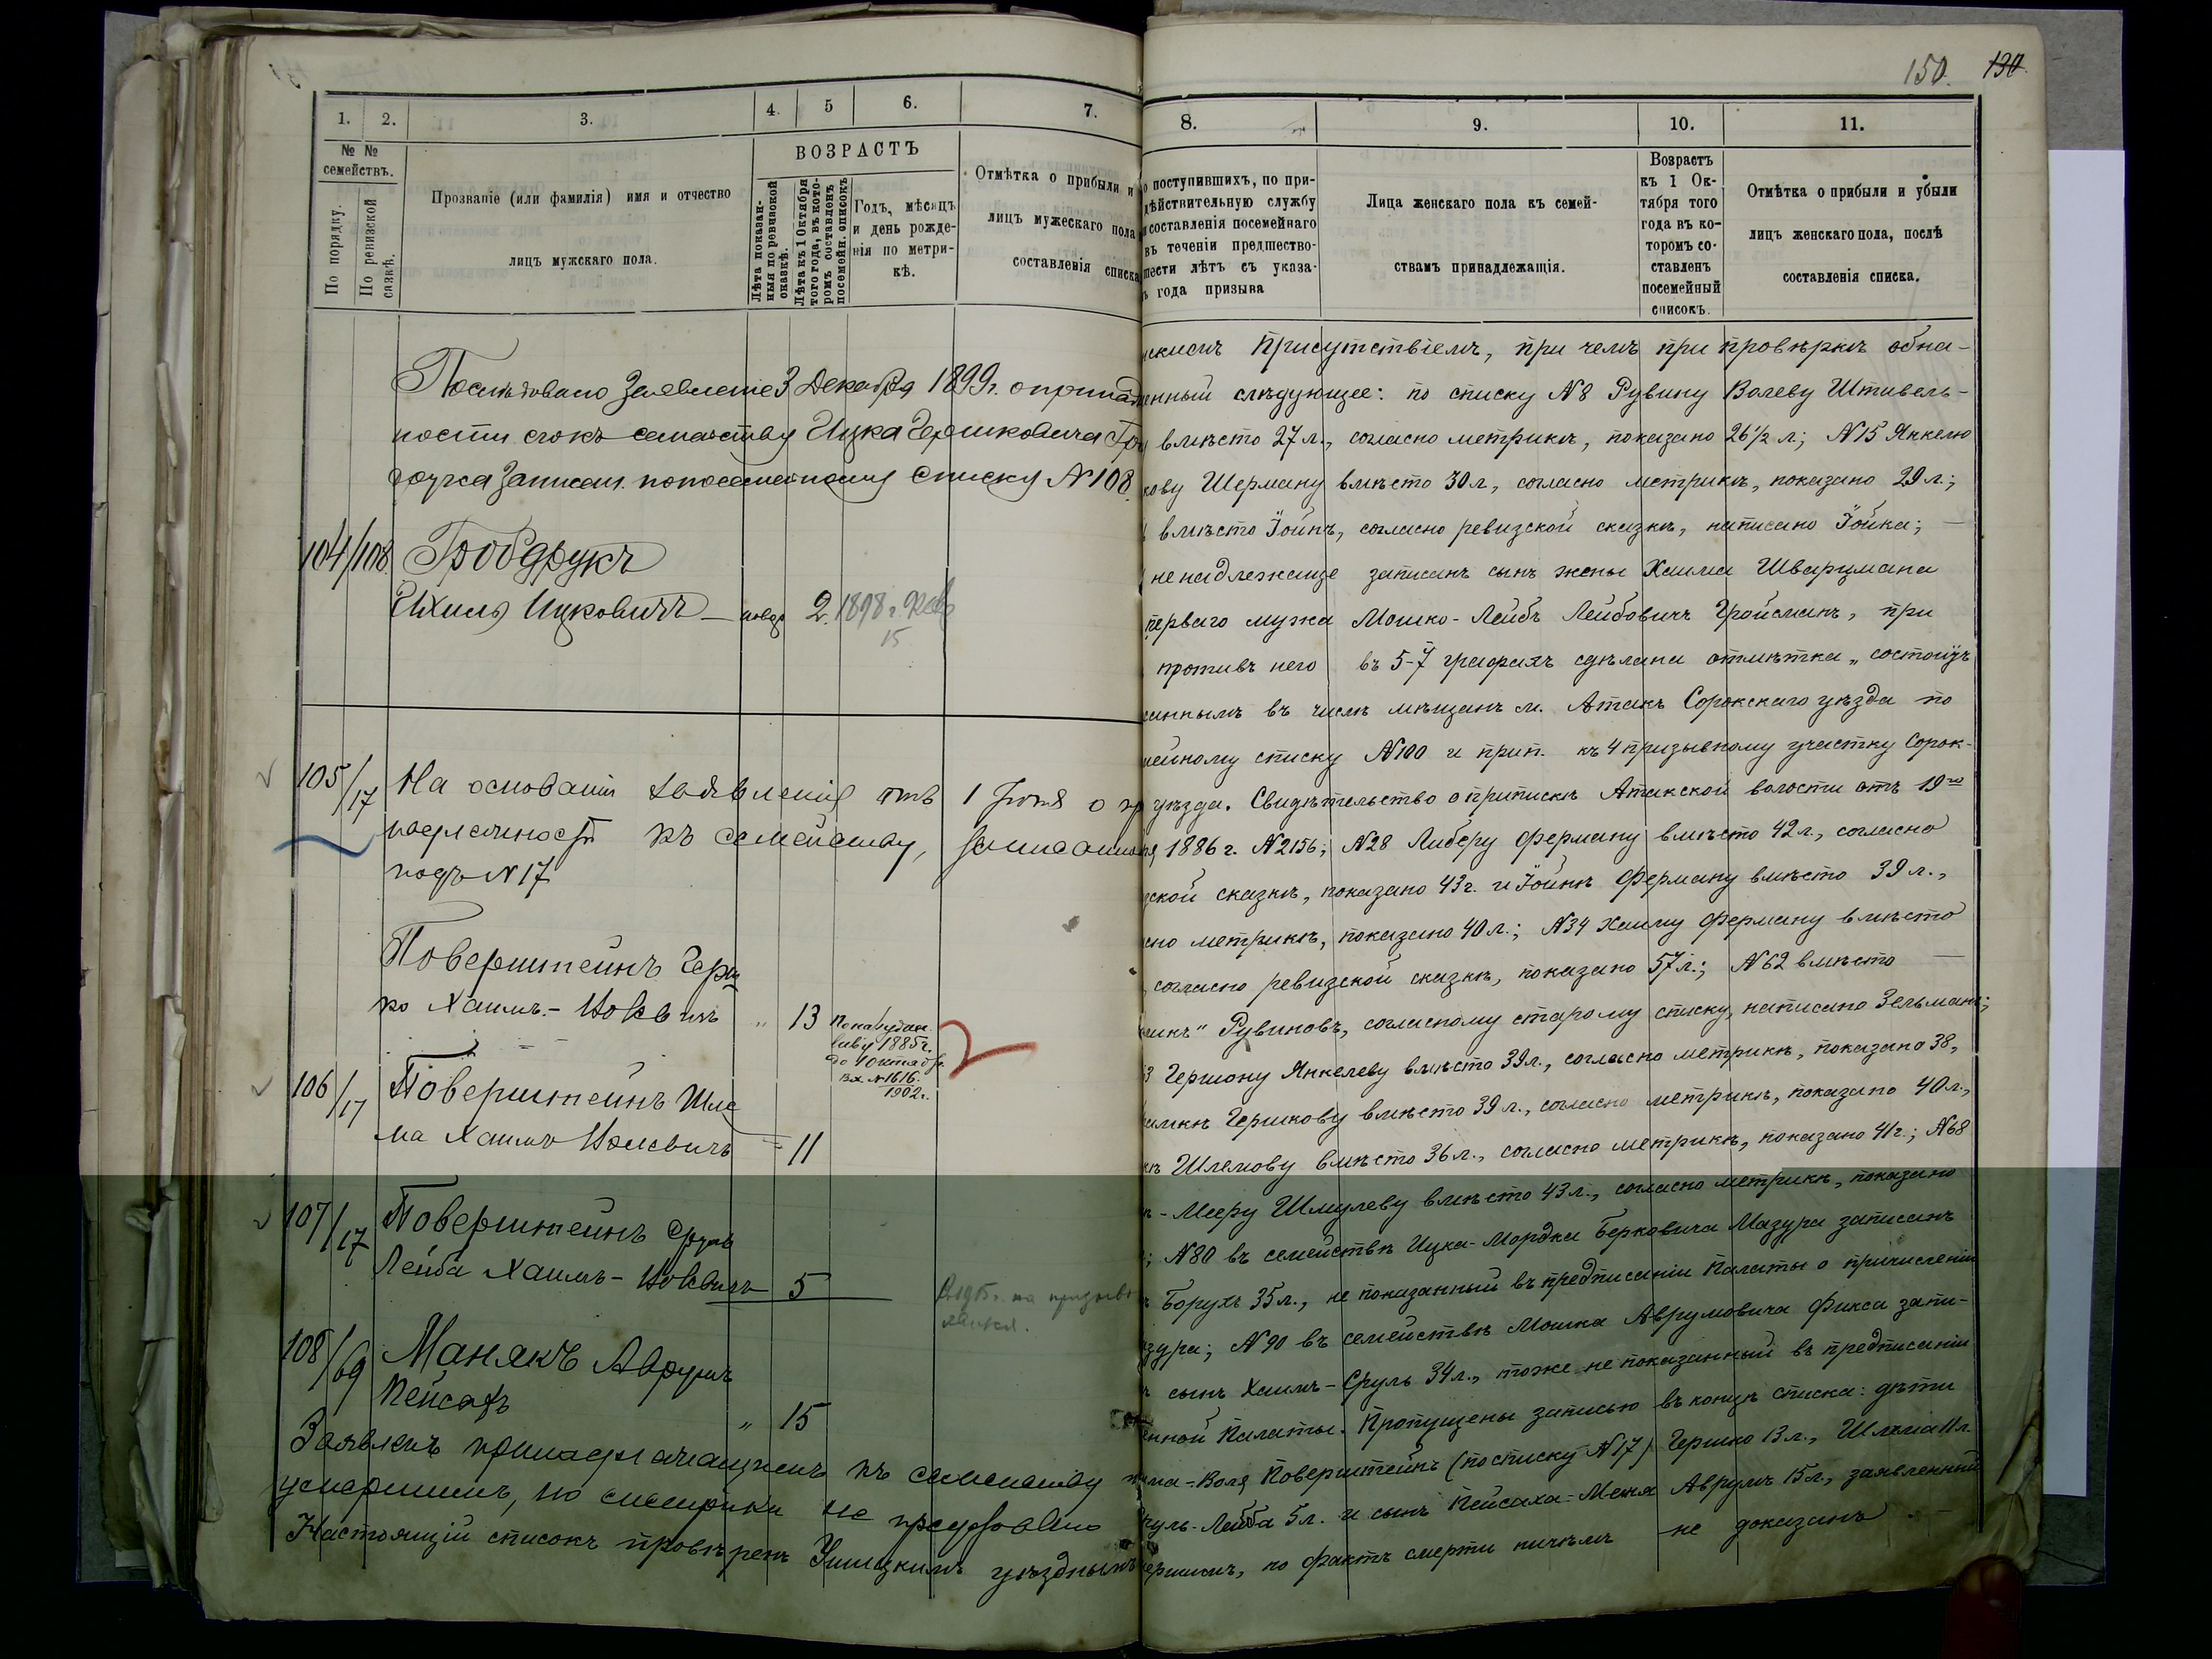 150. 130.
1. 2. 3. 4. 5 6. 7.
№ № семействъ.
По порядку.
По ревизской сказкѣ.
Прозваніе (или фамилія) имя и отчество
лицъ мужскаго пола.
ВОЗРАСТЪ
Лѣта показанныя по ревизской сказкѣ.
Лѣта къ 1 Октября того года, въ которомъ составленъ посемейн. списокъ
Годъ, мѣсяцъ
и день рожде-
нія по метри-
кѣ.
Отмѣтка о прибыли и
лицъ мужескаго пола
составленія списка
Послѣдовало Заявленіе 3 Декабря 1899г. о принад
ности сго къ семейству Ицка Гершковича
записан. по посемейному списку №108.
104/108 Гробдрукъ
Ихиль Ицковичъ — 2. 1898 г. Фев
15
105/17 На основаніи заявленія отъ 1 Іюня о пр
надлежности къ семейству,
подъ №17
Поверштейнъ Герш
ко Хаимъ-Волевичъ " 13
1885г.
до 1 Октября
Вх. №1616.
1902г.
106/17 Поверштейнъ Шле
ма Хаимъ Волевичъ 11
107/17 Поверштейнъ Сруль
Лейба Хаимъ-Волевичъ 5
1915г. на призыв
108/69 Манякъ Аврумъ
Пейсахъ " 15
Заявленъ принадлежащимъ къ семейству
умершимъ, но
Настоящій списокъ провѣренъ Ушицкимъ уѣзднымъ
8. 9. 10. 11.
о поступившихъ, по при-
дѣйствительную службу
и составленія посемейнаго
въ теченіи предшество-
шести лѣтъ съ указа-
ъ года призыва
Лица женскаго пола къ семей-
ствамъ принадлежащія.
Возрастъ
къ 1 Ок-
тября того
года въ ко-
торомъ со-
ставленъ
посемейный
списокъ.
Отмѣтка о прибыли и убыли
лицъ женскаго пола, послѣ
составленія списка.
искимъ Присутствіемъ, при чемъ при провѣркѣ обна-
енный слѣдующее: по списку №8 Рувину Волеву Штивель-
вмѣсто 27 л., согласно метрикѣ, показано 26½ л.; №15 Янкелю
кову Шерману вмѣсто 30 л., согласно метрикѣ, показано 29 л.;
вмѣсто Іойнъ, согласно ревизской сказкѣ, написано Іойна; —
не надлежаще записанъ сынъ жены Хаима Шварцмана
перваго мужа Мошко-Лейбъ Лейбовичъ Гройсманъ, при
противъ него въ 5-й графахъ сдѣлана отмѣтка „состоитъ
саннымъ въ числѣ мѣщанъ м. Атакъ Сорокскаго уѣзда по
мейному списку №100 и прип. къ 4 призывному участку Сорок-
уѣзда. Свидѣтельство о припискѣ Атакской волости отъ 19го
я 1886 г. №2156; №28 Либеру Ферману вмѣсто 42 л., согласно
зской сказкѣ, показано 43 г. и Іойнѣ Ферману вмѣсто 39 л.,
сно метрикѣ, показано 40 л.; №34 Хаиму Ферману вмѣсто
согласно ревизской сказкѣ, показано 57 л.; №62 вмѣсто —
Рувиновъ, согласному старому списку, написано Зельманъ;
3 Гершону Янкелеву вмѣсто 39 л., согласно метрикѣ, показано 38,
Гершкову вмѣсто 39 л., согласно метрикѣ, показано 40 л.,
Шлемову вмѣсто 36 л., согласно метрикѣ, показано 41 г.; №68
-Мееру Шмулеву вмѣсто 43 л., согласно метрикѣ, показано
; №80 въ семействѣ Ицка-Мордка Берковича Мазура записанъ
ъ Борухъ 35 л., не показанный въ предписаніи Палаты о причисленіи
зура; №90 въ семействѣ Мошка Аврумовича Фикса запи-
ъ сынъ Хаимъ-Сруль 34 л., тоже не показанный въ предписаніи
енной Палаты. Пропущены записью въ концѣ списка: дѣти
ма-Воля Поверштейнъ (по списку №17) Гершко 13 л., Шлема 11 л.
руль-Лейба 5 л. и сынъ Пейсаха-Меня Аврумъ 15 л., заявленный
ершимъ, но фактъ смерти ничѣмъ не доказанъ. —